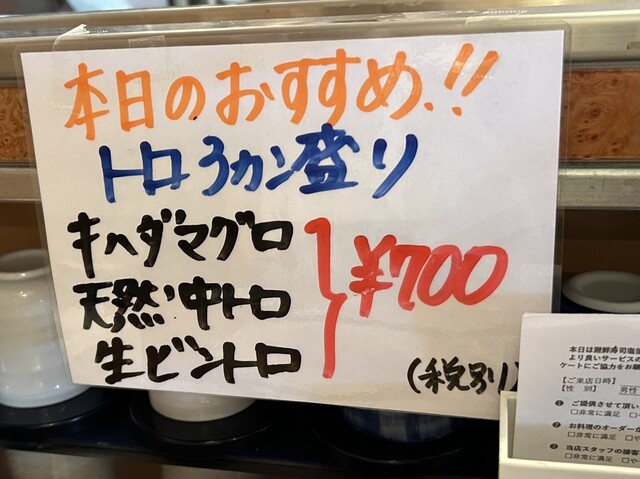 本日のおすすめ!!
トロ3カン盛り
キハダマグロ
天然中トロ
生ビントロ
¥700
(税別)
本日は廻鮮寿司塩
より良いサービスの
ケートにご協力をお願
【ご来店日時】
【性 別】 男性
❶ ご提供させて頂い
□非常に満足 □や
❷ お料理のオーダーか
□非常に満足 □や
❸ 当店スタッフの接客
□非常に満足 □や